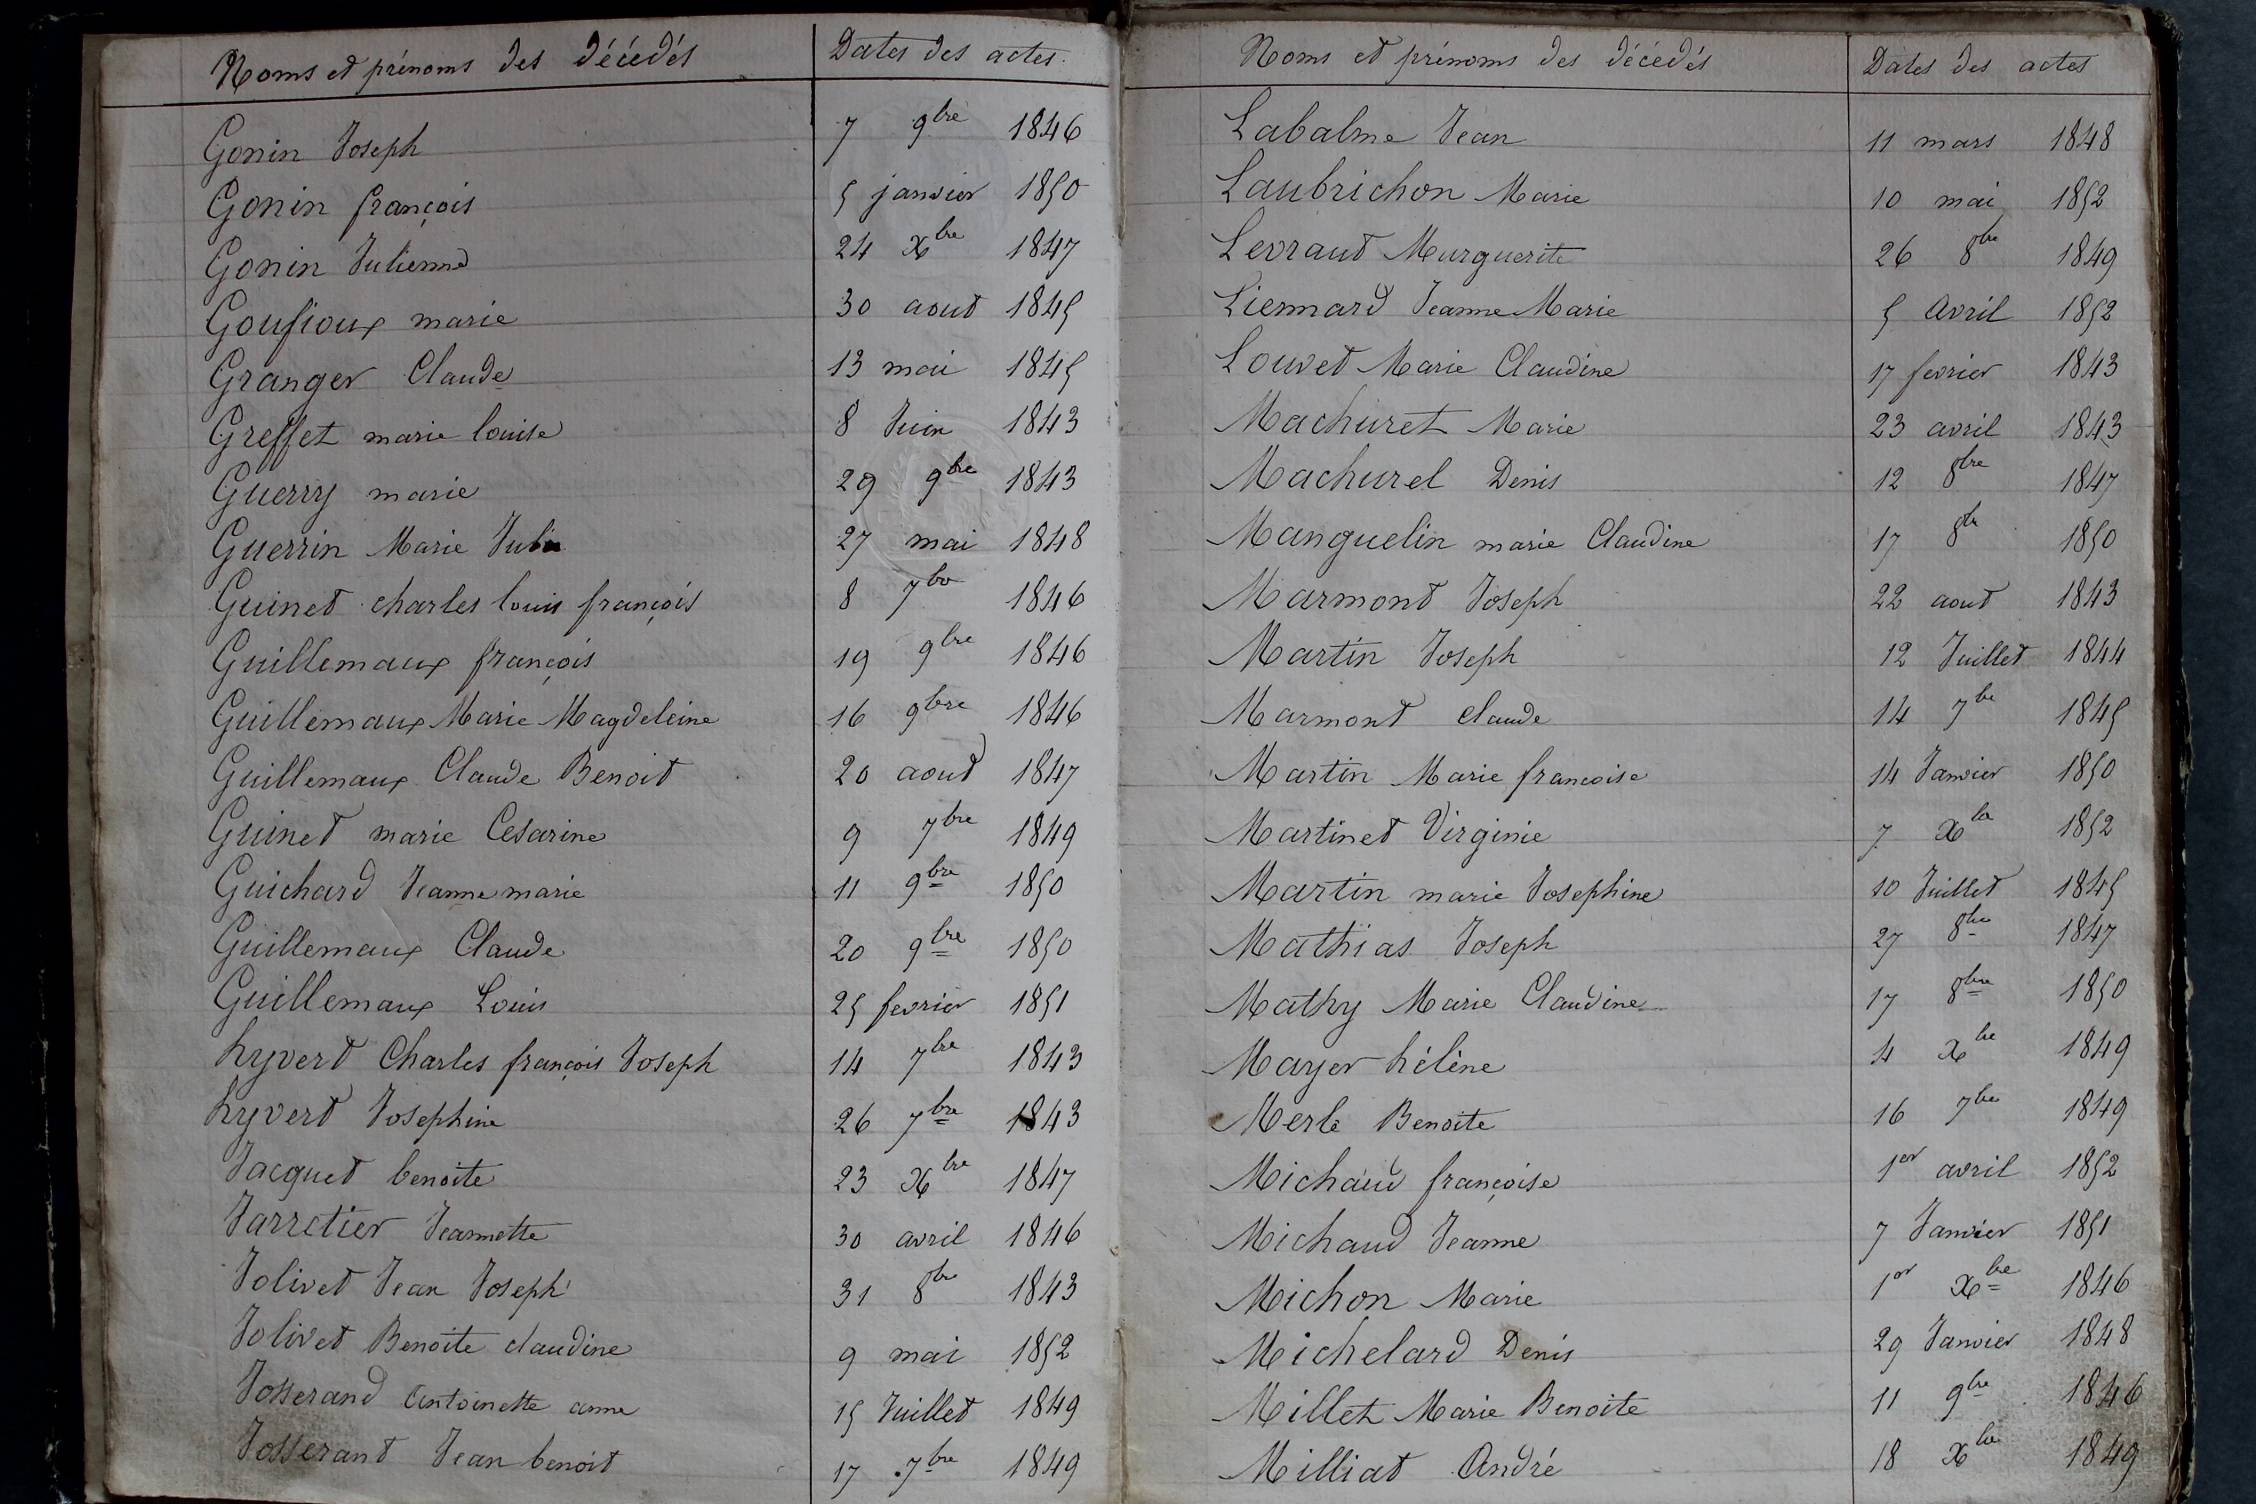 Noms et prénoms des décédés Dates des actes.
Gonin Joseph 7 9bre 1846
Gonin françois 5 janvier 1850
Gonin Julienne 24 Xbre 1847
Goufioux marie 30 aout 1845
Granger Claude 13 mai 1845
Greffet marie louise 8 Juin 1843
Guerry marie 29 9bre 1843
Guerrin Marie Julie 27 mai 1848
Guinet charles louis françois 8 7bre 1846
Guillemaux françois 19 9bre 1846
Guillemaux Marie Magdeleine 16 9bre 1846
Guillemaux Claude Benoit 20 aout 1847
Guinet marie Cesarine 9 7bre 1849
Guichard Jeanne marie 11 9bre 1850
Guillemaux Claude 20 9bre 1850
Guillemaux Louis 25 fevrier 1851
hyvert Charles françois Joseph 14 7bre 1843
hyvert Josephine 26 7bre 1843
Jacquet benoite 23 Xbre 1847
Jarretier Jeannette 30 avril 1846
Jolivet Jean Joseph 31 8bre 1843
Jolivet Benoite claudine 9 mai 1852
Josserand Antoinette anne 15 Juillet 1849
Josserant Jean benoit 17 7bre 1849
Noms et prénoms des décédés Dates des actes
Labalme Jean 11 mars 1848
Laubrichon Marie 10 mai 1852
Levraut Marguerite 26 8bre 1849
Liennard Jeanne Marie 5 Avril 1852
Louvet Marie Claudine 17 fevrier 1843
Machuret Marie 23 avril 1843
Machurel Denis 12 8bre 1847
Manguelin marie Claudine 17 8bre 1850
Marmont Joseph 22 aout 1843
Martin Joseph 12 Juillet 1844
Marmont claude 14 7bre 1845
Martin Marie francoise 14 Janvier 1850
Martinet Virginie 7 Xbre 1852
Martin marie Josephine 10 Juillet 1845
Mathias Joseph 27 8bre 1847
Mathy Marie Claudine 17 8bre 1850
Mayer hélène 4 Xbre 1849
Merle Benoite 16 7bre 1849
Michaud françoise 1er avril 1852
Michaud Jeanne 7 Janvier 1851
Michon Marie 1er Xbre 1846
Michelard Denis 29 Janvier 1848
Millet Marie Benoite 11 9bre 1846
Milliat André 18 Xbre 1849